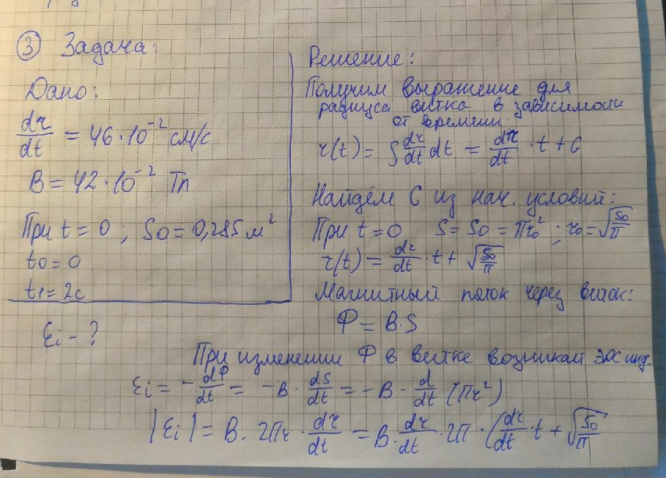 ③ Задача:
Дано:
dr/dt = 46·10⁻² см/с
B = 42·10⁻² Тл
При t = 0 ; S₀ = 0,285 м²
t₀ = 0
t₁ = 2с
Ɛi - ?
Решение:
Получим выражение для
радиуса витка в зависимости
от времени:
r(t) = ∫ dr/dt dt = dr/dt · t + C
Найдём C из нач. условий:
При t = 0 S = S₀ = πr₀² ; r₀ = √(S₀/π)
r(t) = dr/dt · t + √(S₀/π)
Магнитный поток через виток:
Ф = B·S
При изменении Ф в витке возникает ЭДС инд.
Ɛi = - dФ/dt = -B · dS/dt = -B · d/dt (πr²)
|Ɛi| = B · 2πr · dr/dt = B · dr/dt · 2π · (dr/dt · t + √(S₀/π)